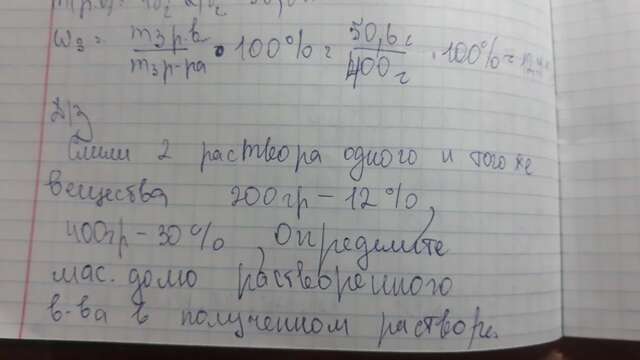 ω₃ = m₃ р.в / m₃ р-ра • 100% = 50,6 г / 400 г • 100% =
Д/З
Слили 2 раствора одного и того же
вещества 200гр – 12%,
400гр – 30%, Определите
мас. долю растворенного
в-ва в полученном растворе.